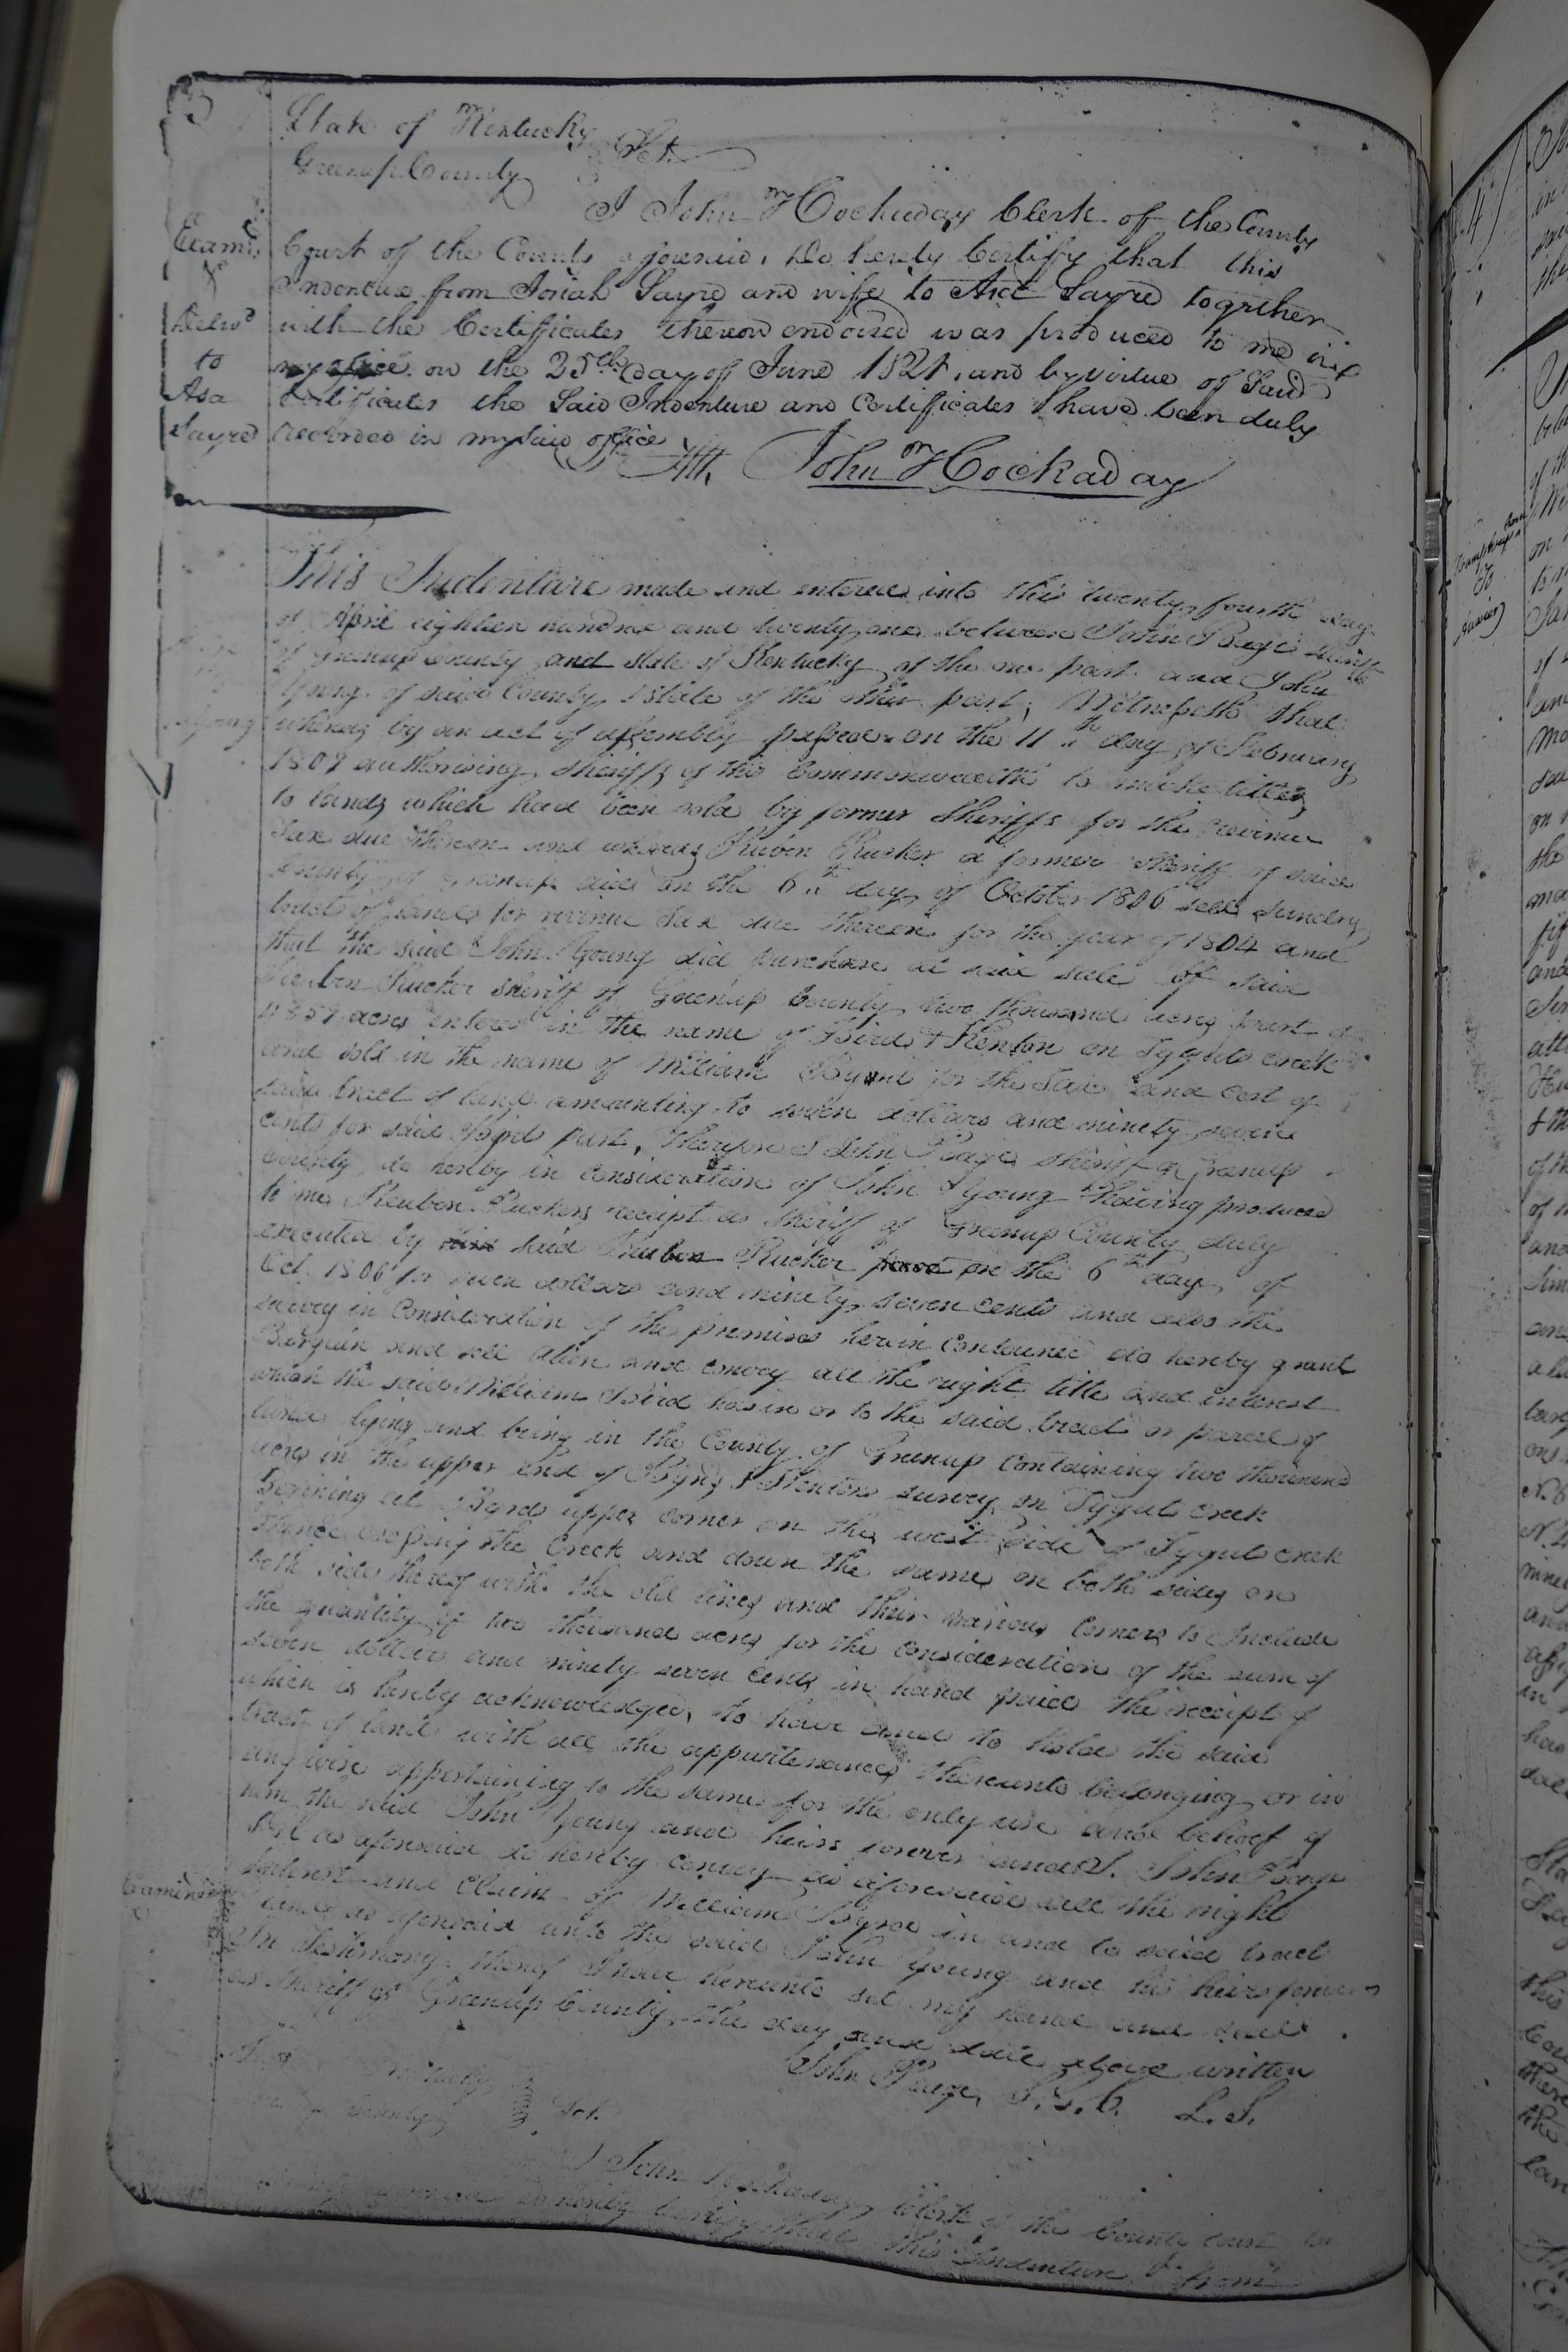 3
State of Kentucky
Greenup County Sct.
I John M Hockaday Clerk of the County
Court of the County aforesaid, do hereby Certify that this
Indenture from Josiah Sayre and wife to Asa Sayre together
with the Certificates thereon endorsed was produced to me in
my office on the 25th day of June 1821, and by virtue of Said
Certificates the Said Indenture and Certificates I have been duly
recorded in my Said office
Att. John M Hockaday
Examd
&
Delivd
to
Asa
Sayre
This Indenture made and entered into this twenty fourth day
of April eighteen hundred and twenty one between John Page Sheriff
of Greenup County and state of Kentucky of the one part and John
Young of said County & State of the other part, Witnesseth that
whereas by an act of assembly passed on the 11th day of February
1809 authorising sheriffs of this Commonwealth to make titles
to lands which had been sold by former Sheriffs for the revenue
Tax due thereon and whereas Reuben Rucker a former Sheriff of said
County of Greenup did on the 6th day of October 1806 sell sundry
tracts of land for revenue Tax due thereon for the year of 1804 and
that the said John Young did purchase at said sale of said
Reuben Rucker sheriff of Greenup County two thousand acres part of
acres entered in the name of Bird & Kenton on Tyguts creek
and sold in the name of William for the Tax and cost of
said tract of land amounting to seven dollars and ninety seven
cents for said Byrds part, Therefore I John Page sheriff of Greenup
County do hereby in consideration of John Young having produced
to me Reuben Ruckers receipt as Sheriff of Greenup County duly
executed by said Reuben Rucker on the 6th day of
Oct. 1806 for seven dollars and ninety seven cents and also the
survey in Consideration of the premises herein Contained do hereby grant
Bargain and sell alien and convey all the right title and interest
which the said William Bird has in or to the said tract or parcel of
land lying and being in the County of Greenup Containing two thousand
acres in the upper end of Byrds & Kentons survey on Tyguts creek
Begining at Byrds upper corner on the west side of Tyguts creek
thence crossing the Creek and down the same on both sides on
both sides thereof with the old lines and their various Corners to Include
the quantity of two thousand acres for the consideration of the sum of
seven dollars and ninety seven cents in hand paid the receipt of
which is hereby acknowledged, to have and to hold the said
tract of land with all the appurtenances thereunto belonging or in
any wise appertaining to the same for the only use and behoof of
him the said John Young and heirs forever and I John Page
as aforesaid do hereby convey as aforesaid all the right
Interest and Claim of William Byrd in and to said tract
land as aforesaid unto the said John Young and his heirs forever
In Testimony thereof I have hereunto set my hand and seal
as Sheriff of Greenup County the day and date above written
John Page, S.G.C. L.S.
Young
Examined
Kentucky
County Sct.
I John Hockaday Clerk of the County Court for
do hereby certify that this Indenture from